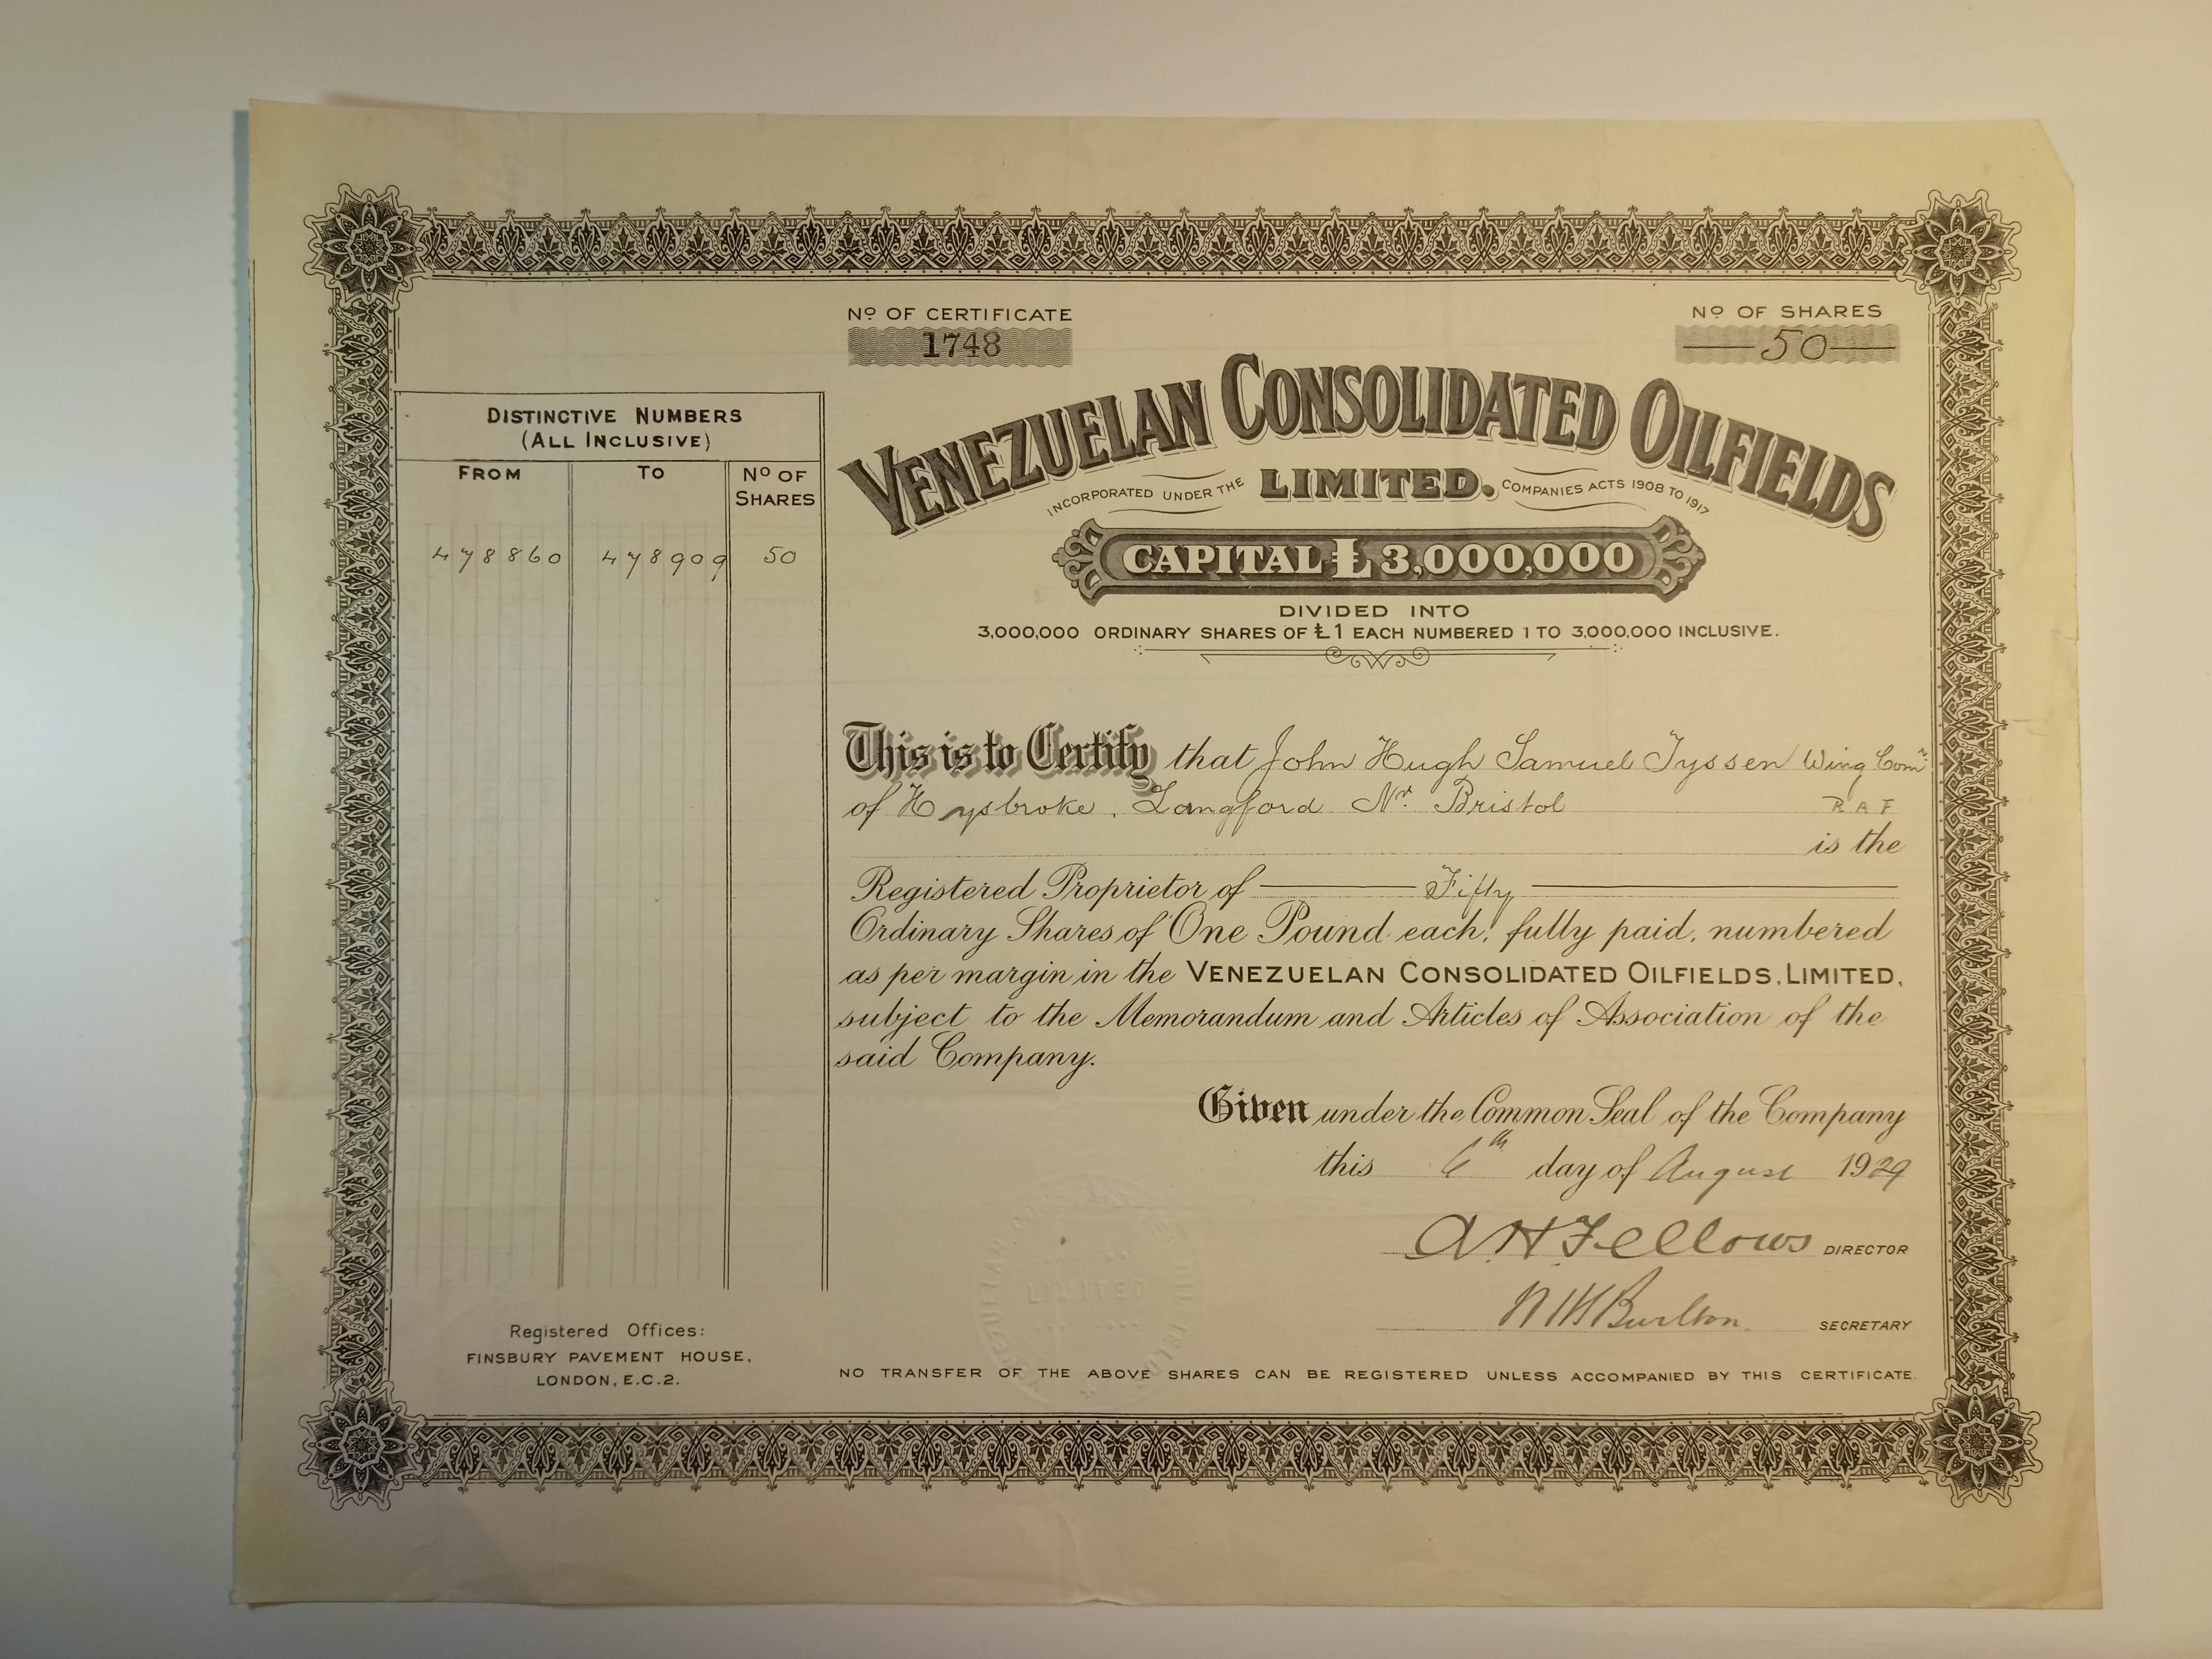 Nº OF CERTIFICATE
1748
Nº OF SHARES
50
VENEZUELAN CONSOLIDATED OILFIELDS
INCORPORATED UNDER THE LIMITED. COMPANIES ACTS 1908 TO 1917
CAPITAL £3,000,000
DIVIDED INTO
3,000,000 ORDINARY SHARES OF £1 EACH NUMBERED 1 TO 3,000,000 INCLUSIVE.
DISTINCTIVE NUMBERS
(ALL INCLUSIVE)
FROM TO Nº OF SHARES
478860 478909 50
This is to Certify that John Hugh Samuel Tyssen Wing Comr
of Hysbroke, Langford Nr. Bristol R A F
is the
Registered Proprietor of Fifty
Ordinary Shares of One Pound each, fully paid, numbered
as per margin in the VENEZUELAN CONSOLIDATED OILFIELDS, LIMITED,
subject to the Memorandum and Articles of Association of the
said Company.
Given under the Common Seal of the Company
this 6th day of August 1929
A H Fellows DIRECTOR
Burlton SECRETARY
LIMITED
Registered Offices:
FINSBURY PAVEMENT HOUSE,
LONDON, E.C.2.
NO TRANSFER OF THE ABOVE SHARES CAN BE REGISTERED UNLESS ACCOMPANIED BY THIS CERTIFICATE.